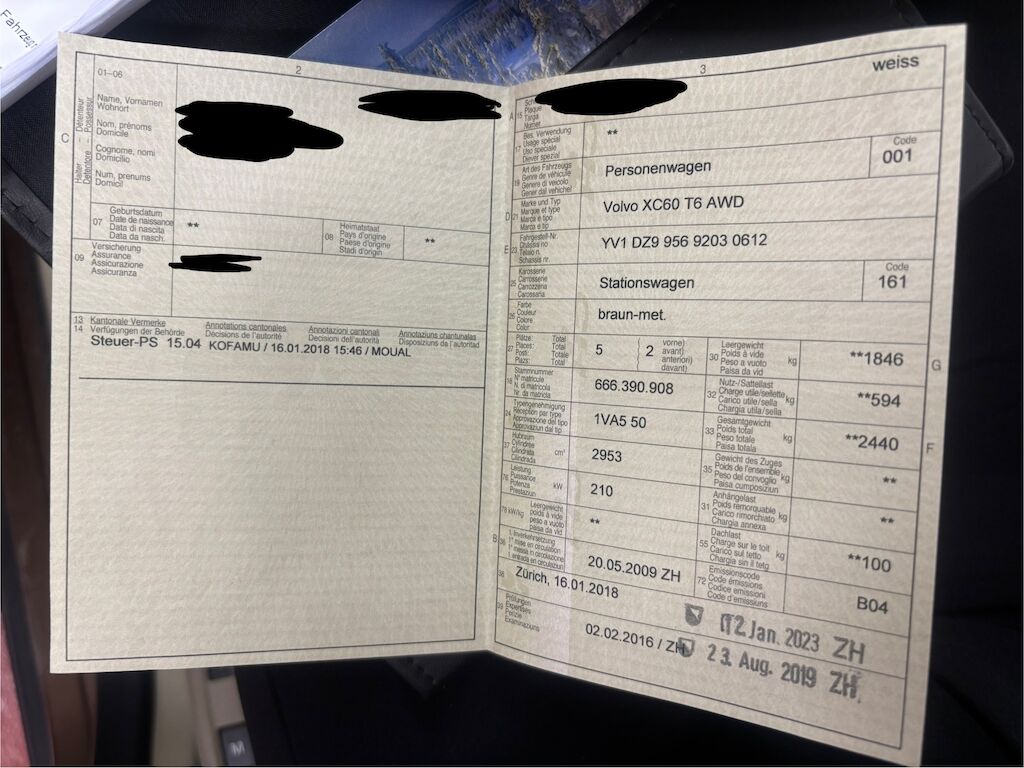 Fahrzeug
2
01–06
C
Halter – Détenteur
Detentore – Possessur
Name, Vornamen
Wohnort
Nom, prénoms
Domicile
Cognome, nomi
Domicilio
Num, prenums
Domicil
07
Geburtsdatum
Date de naissance
Data di nascita
Data da nasch.
**
08
Heimatstaat
Pays d'origine
Paese d'origine
Stadi d'origin
**
09
Versicherung
Assurance
Assicurazione
Assicuranza
13 Kantonale Vermerke Annotations cantonales Annotazioni cantonali Annotaziuns chantunalas
14 Verfügungen der Behörde Décisions de l'autorité Decisioni dell'autorità Disposiziuns da l'autoritad
Steuer-PS 15.04 KOFAMU / 16.01.2018 15:46 / MOUAL
3
weiss
A
15
Plaque
Targa
Numer
17
Bes. Verwendung
Usage spécial
Uso speciale
Diever spezial
**
19
Art des Fahrzeugs
Genre de véhicule
Genere di veicolo
Gener dal vehichel
Personenwagen
Code
001
D
21
Marke und Typ
Marque et type
Marca e tipo
Marca e tip
Volvo XC60 T6 AWD
E
23
Fahrgestell-Nr.
Châssis no
Telaio n.
Schassis nr.
YV1 DZ9 956 9203 0612
25
Karosserie
Carrosserie
Carrozzeria
Carossaria
Stationswagen
Code
161
26
Farbe
Couleur
Colore
Color
braun-met.
27
Plätze: Total
Places: Total
Posti: Totale
Plazs: Total
5
2
vorne)
avant)
anteriori)
davant)
30
Leergewicht
Poids à vide
Peso a vuoto
Paisa da vid
kg
**1846
G
18
Stammnummer
N° matricule
N. di matricola
Nr. da matricla
666.390.908
32
Nutz-/Sattellast
Charge utile/sellette
Carico utile/sella
Chargia utila/sella
kg
**594
24
Typengenehmigung
Réception par type
Approvazione del tipo
Approvaziun dal tip
1VA5 50
33
Gesamtgewicht
Poids total
Peso totale
Paisa totala
kg
**2440
F
37
Hubraum
Cylindrée
Cilindrata
Cilindrada
cm³
2953
35
Gewicht des Zuges
Poids de l'ensemble
Peso del convoglio
Paisa cumposiziun
kg
**
76
Leistung
Puissance
Potenza
Prestaziun
kW
210
31
Anhängelast
Poids remorquable
Carico rimorchiato
Chargia annexa
kg
**
78 kW/kg
Leergewicht
poids à vide
peso a vuoto
paisa da vid
**
55
Dachlast
Charge sur le toit
Carico sul tetto
Chargia sin il tetg
kg
**100
B
36
1. Inverkehrsetzung
1re mise en circulation
1a messa in circolazione
1. entrada en circulaziun
20.05.2009 ZH
72
Emissionscode
Code émissions
Codice emissioni
Code d'emissiuns
B04
38
Zürich, 16.01.2018
39
Prüfungen
Expertises
Perizie
Examinaziuns
02.02.2016 / ZH
12 Jan. 2023 ZH
23. Aug. 2019 ZH
M